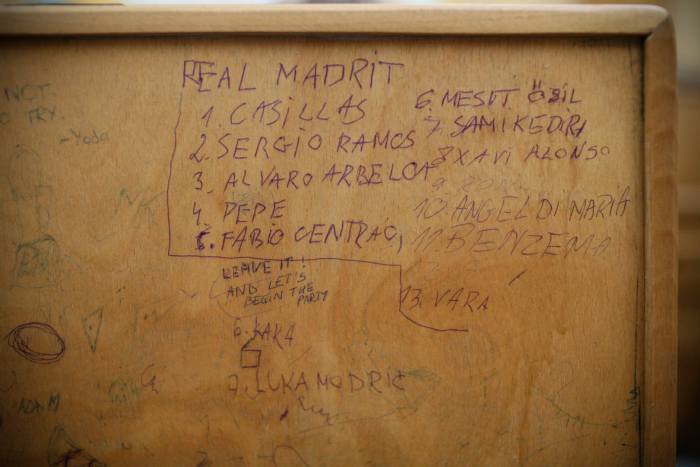 REAL MADRIT
1. CASILLAS
2. SERGIO RAMOS
3. ALVARO ARBELOA
4. PEPE
5. FABIO CENTRAO,
6. MESUT ÖZIL
7. SAMI KEDIRA
8 XAVI ALONSO
9.
10. ANGEL DI MARIA
11. BENZEMA
13. VARA
LEAVE IT!
AND LET'S
BEGIN THE
PARTY
6. KAKA
7. LUKA MODRIC
NOT
TRY.
-Yoda
ADAM